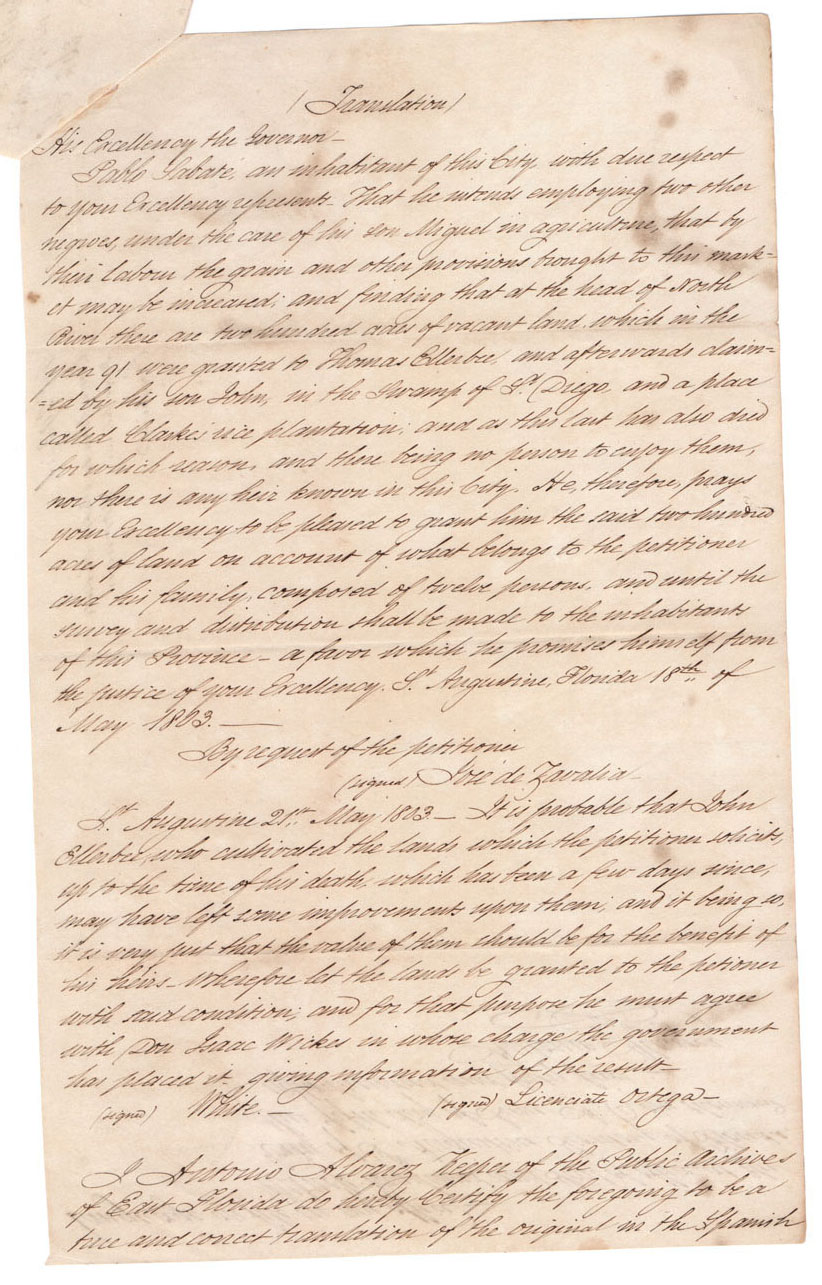 (Translation)
His Excellency the Governor—
Pablo Sabate, an inhabitant of this City, with due respect
to your Excellency represents— That he intends employing two other
negroes, under the care of his son Miguel in agriculture, that by
their labour the grain and other provisions brought to this mark=
et may be increased; and finding that at the head of North
River there are two hundred acres of vacant land, which in the
year 91 were granted to Thomas Ellerbee, and afterwards claim=
=ed by his son John, in the Swamp of St. Diego, and a place
called Clarkes rice plantation; and as this last has also died
for which reason, and there being no person to enjoy them,
nor there is any heir known in this City. He, therefore, prays
your Excellency to be pleased to grant him the said two hundred
acres of land on account of what belongs to the petitioner
and his family, composed of twelve persons, and until the
survey and distribution shall be made to the inhabitants
of this Province— a favor which he promises himself from
the justice of your Excellency. St. Augustine, Florida 18th of
May 1803.—
By request of the petitioner
(signed) José de Zavalia—
St. Augustine 21st May 1803— It is probable that John
Ellerbee, who cultivated the lands which the petitioner solicits,
up to the time of his death, which has been a few days since,
may have left some improvements upon them; and it being so,
it is very just that the value of them should be for the benefit of
his heirs— Wherefore let the lands be granted to the petioner
with said condition; and for that purpose he must agree
with Don Isaac Wickes in whose charge the government
has placed it giving information of the result—
(signed) White.— (signed) Licenciate Ortega—
I Antonio Alvarez Keeper of the Public Archives
of East Florida do hereby Certify the foregoing to be a
true and correct translation of the original in the Spanish